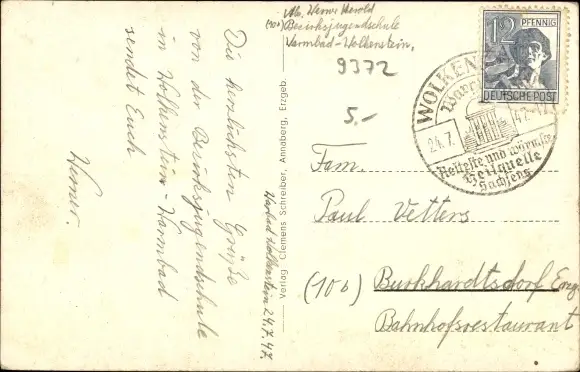 Die herzlichsten Grüße
von der Bezirksjugendschule
in Wolkenstein-Warmbad
sendet Euch
Werner.
Warmbad Wolkenstein 24.7.47.
Verlag Clemens Schreiber, Annaberg, Erzgeb.
Abs. Werner Herold
(10b) Bezirksjugendschule
Warmbad-Wolkenstein,
9372
5.-
12 PFENNIG
DEUTSCHE POST
WOLKEN
24.7. 47-
Aelteste und wärmste
Heilquelle
Sachsens
Fam.
Paul Vetters
(10b) Burkhardtsdorf Erzg.
Bahnhofsrestaurant